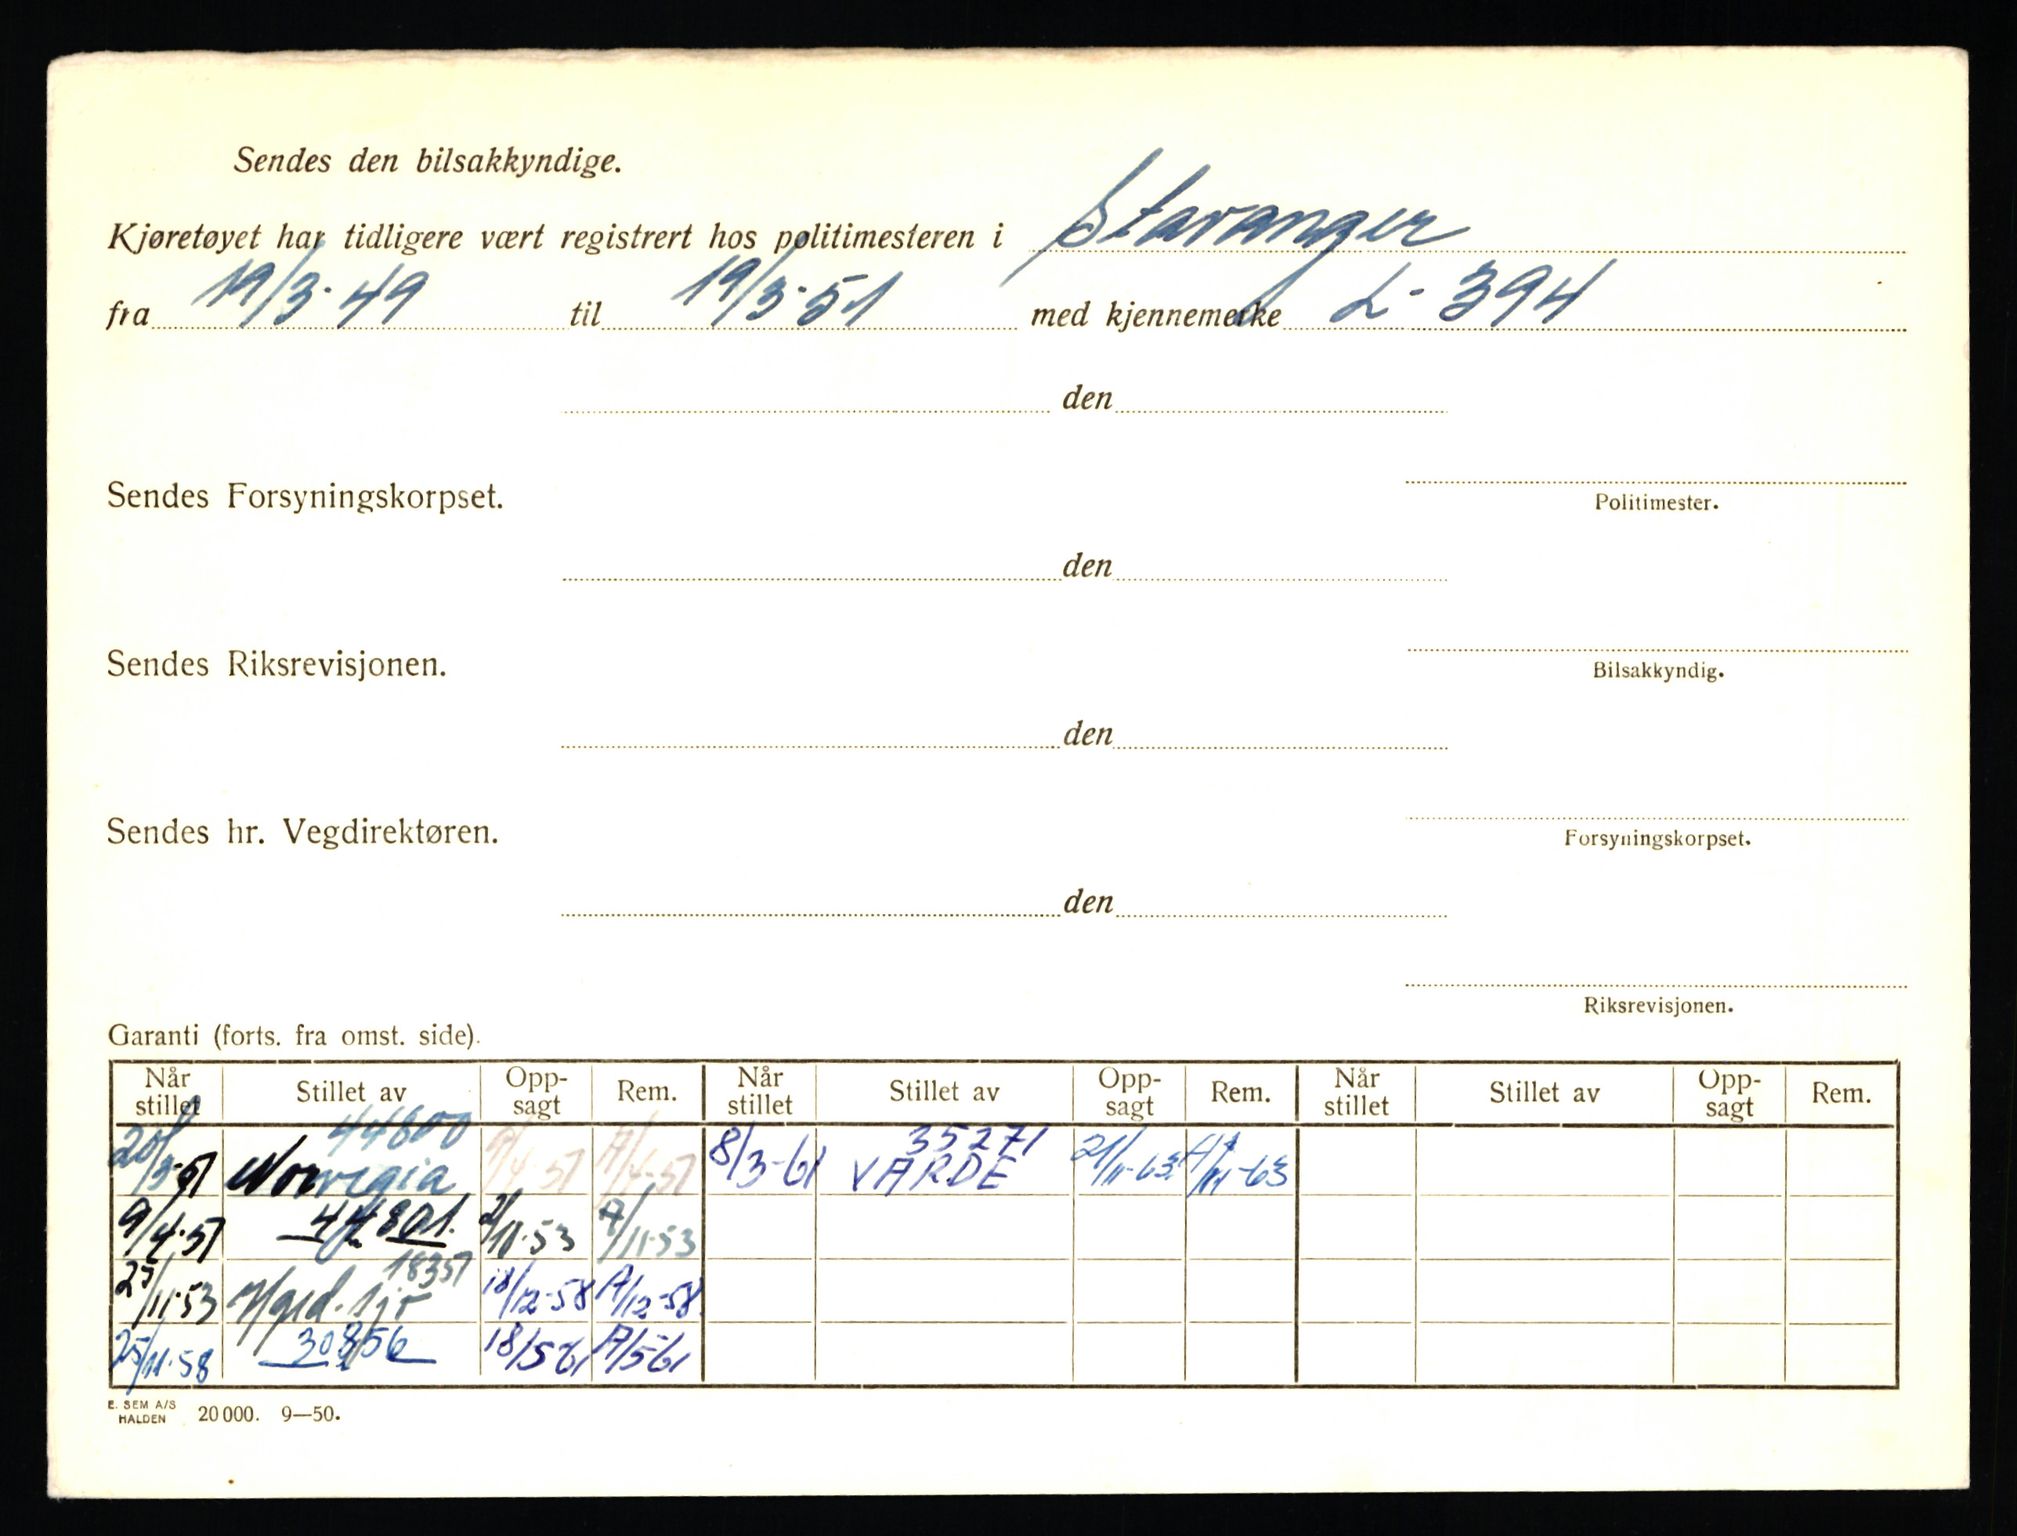 Sendes den bilsakkyndige.
Kjøretøyet har tidligere vært registrert hos politimesteren i Stavanger
fra 19/3-49 til 19/3-51 med kjennemerke L-394
den
Sendes Forsyningskorpset.
Politimester.
den
Sendes Riksrevisjonen.
Bilsakkyndig.
den
Sendes hr. Vegdirektøren.
Forsyningskorpset.
den
Riksrevisjonen.
Garanti (forts. fra omst. side).
Når stillet Stillet av Opp-sagt Rem. Når stillet Stillet av Opp-sagt Rem. Når stillet Stillet av Opp-sagt Rem.
44800 35271
20/3-51 Norwegia 9/4-51 A/4-51 8/3-61 VARDE 21/11-63 A/11-63
9/4-51 44801. 2/11-53 A/11-53
18351
25/11-53 18/12-58 A/12-58
25/11-58 30856 18/5-61 A/5-61
E. SEM A/S
HALDEN 20000. 9—50.